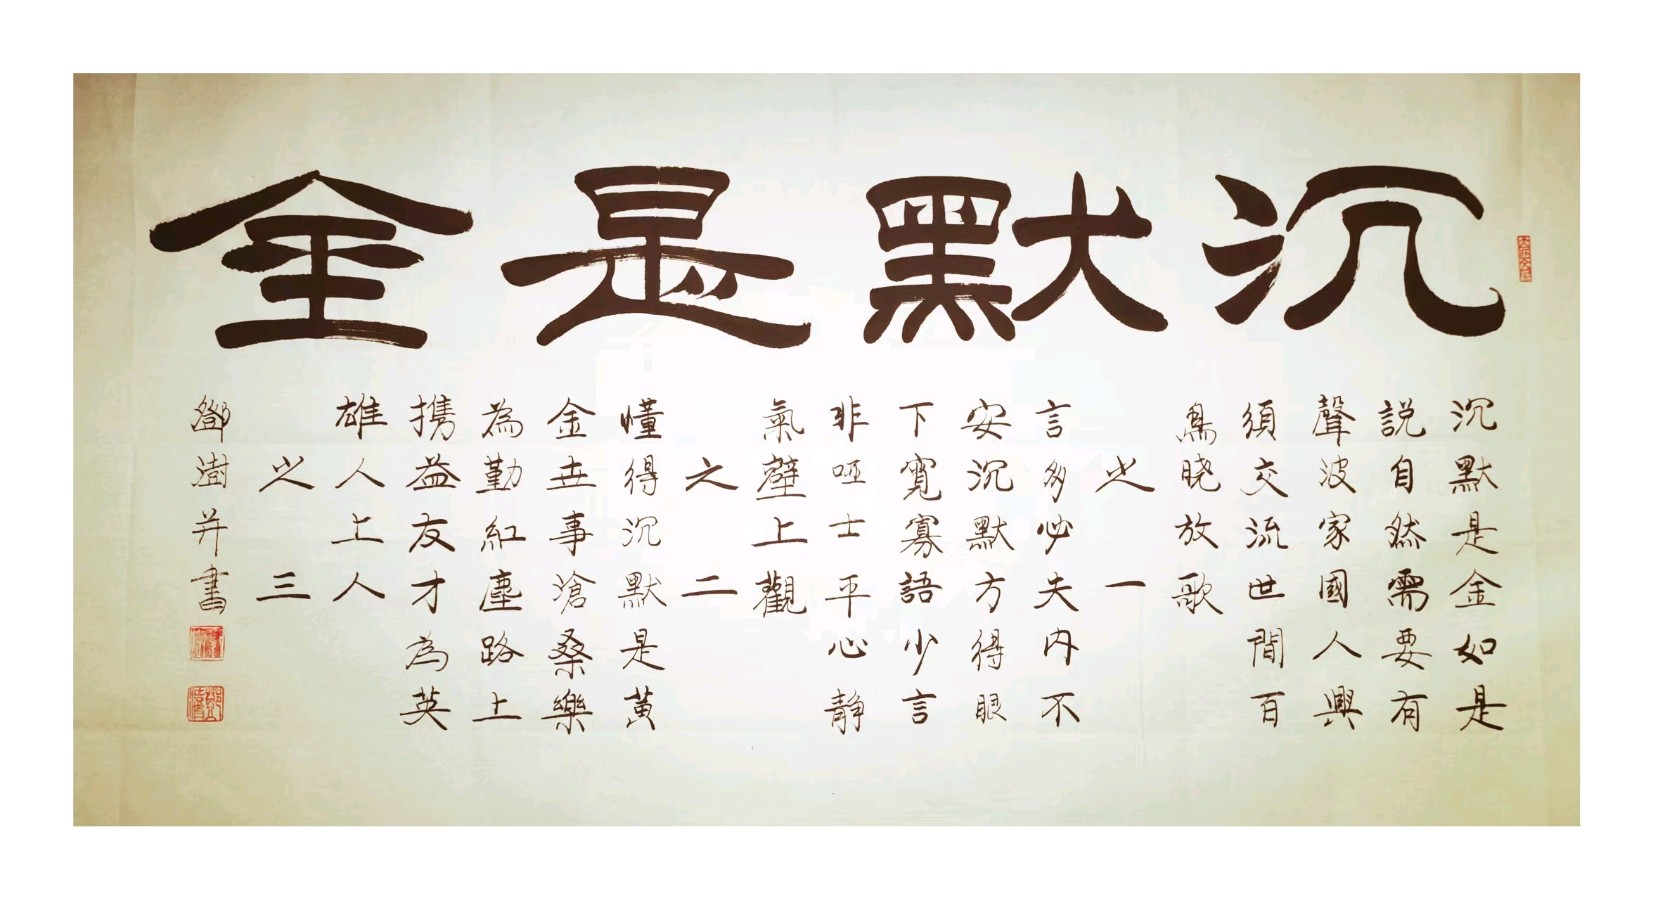 沉默是金
沉默是金如是
説自然需要有
聲波家國人興
須交流世間百
鳥晓放歌
之一
言多必失内不
安沉默方得眼
下寬寡語少言
非哑士平心静
氣壁上觀
之二
懂得沉默是黄
金世事滄桑樂
為勤紅塵路上
携益友才為英
雄人上人
之三
鄧澍并書